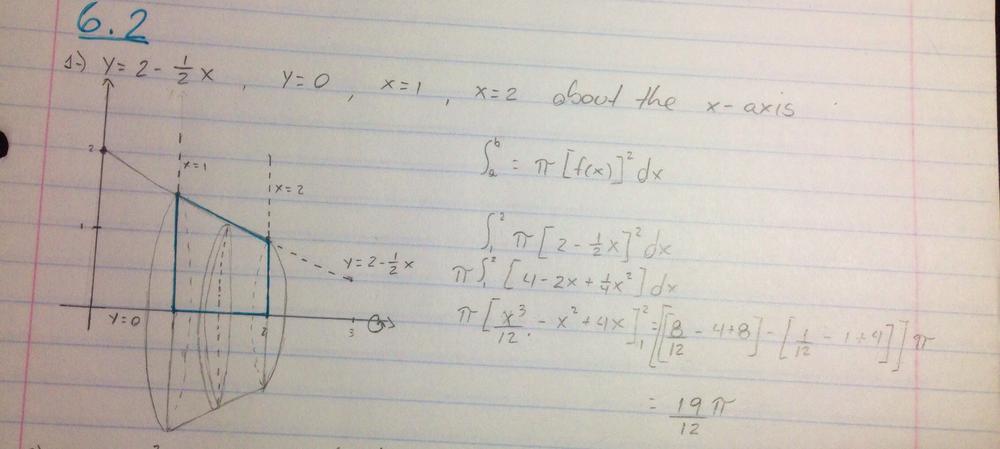 6.2
1-) y = 2 - 1/2 x , y=0 , x=1 , x=2 about the x-axis
2
x=1
x=2
1
y=2-1/2 x
y=0
2
3
∫_a^b = π [f(x)]^2 dx
∫_1^2 π [2 - 1/2 x]^2 dx
π ∫_1^2 [4 - 2x + 1/4 x^2] dx
π [x^3/12 - x^2 + 4x]_1^2 = [[8/12 - 4+8] - [1/12 - 1+4]] π
= 19/12 π